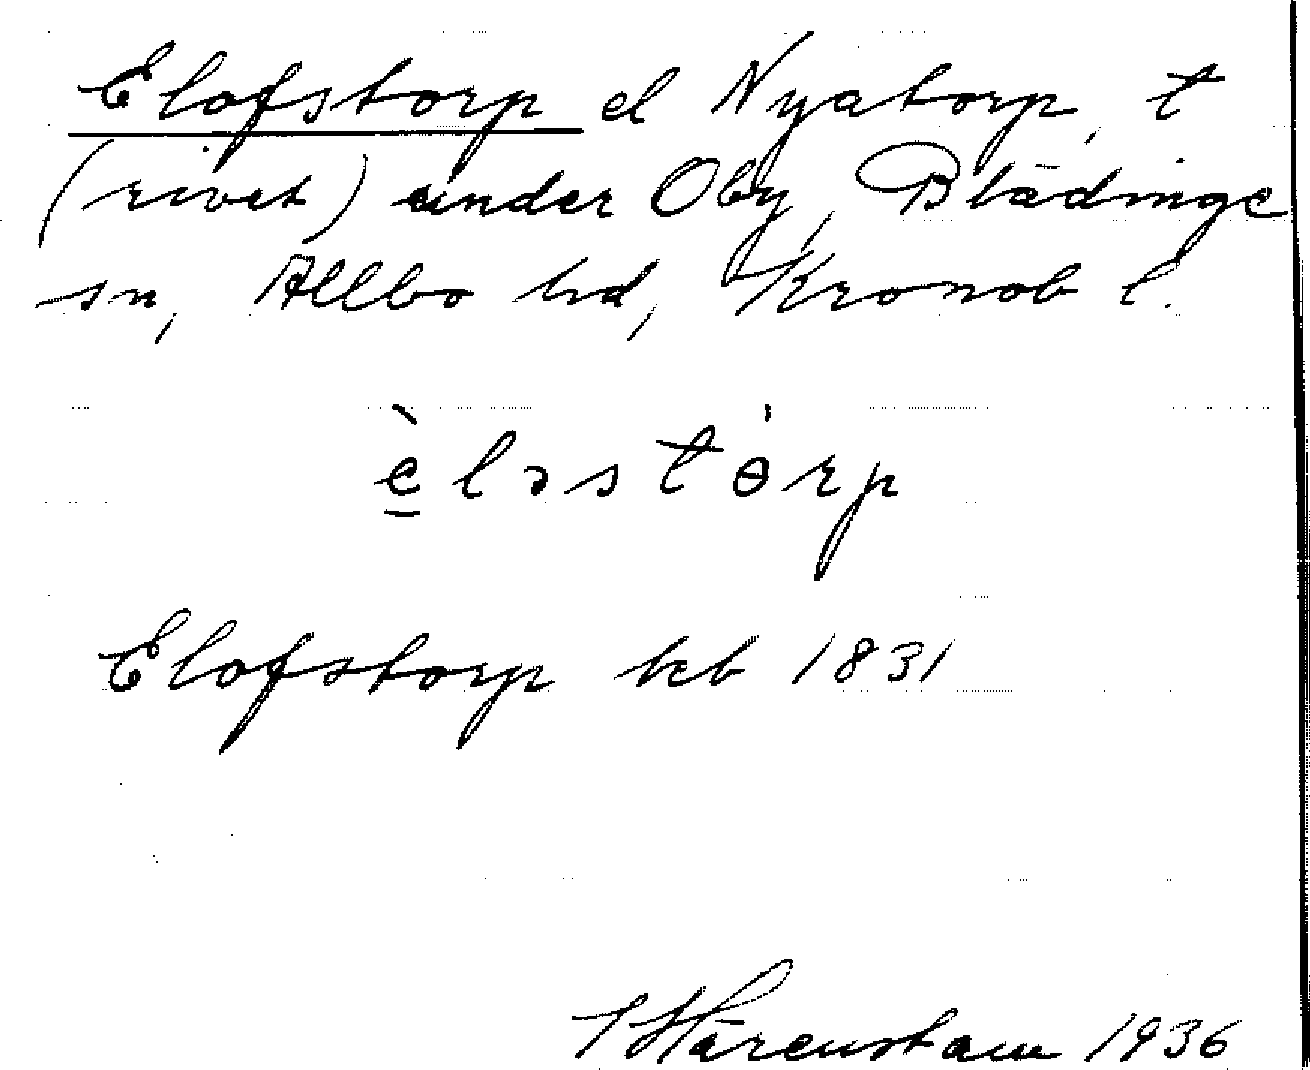 Elofstorp el Nyatorp, t
(rivet) under Oby, Blädinge
sn, Allbo hd, Kronob l.
è̲ləstɵ́rp
Elofstorp kb 1831
Härenstam 1936